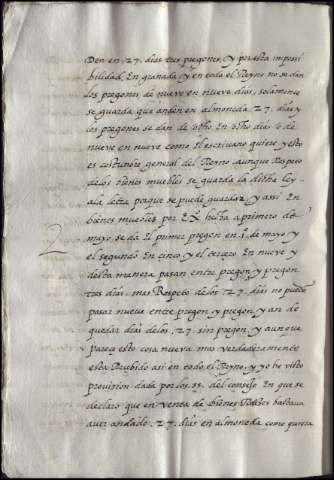 Den en 27. dias tres pregones, y por esta impossi
bilidad, En granada, y en todo el Reyno no se dan
los pregones de nueve en nueve dias, solamente
se guarda que anden en almoneda 27. dias y
los pregones se dan de ocho En ocho dias o de
nueve en nueve como El escrivano quiere y esto
es costumbre general del Reyno aunque Respeto
de los bienes muebles se guarda la dicha ley
a la letra porque se puede guardar, y assi En
bienes muebles por Ex. hecha a primero de
mayo se da El primer pregon en 1. de mayo y
el segundo En cinco, y el tercero En nueve y
desta manera pasan entre pregon y pregon
tres dias. mas Respeto de los 27. dias no pueden
pasar nueve entre pregon, y pregon, y an de
quedar dias de los .27. sin pregon, y aunque
parece esto cosa nueva mas verdaderamente
esta Recibido assi en todo el Reyno, y yo he visto
provission dada por los ss. del consejo En que se
declaro que en venta de bienes Raices bastava
aver andado .27. dias en almoneda como quiera